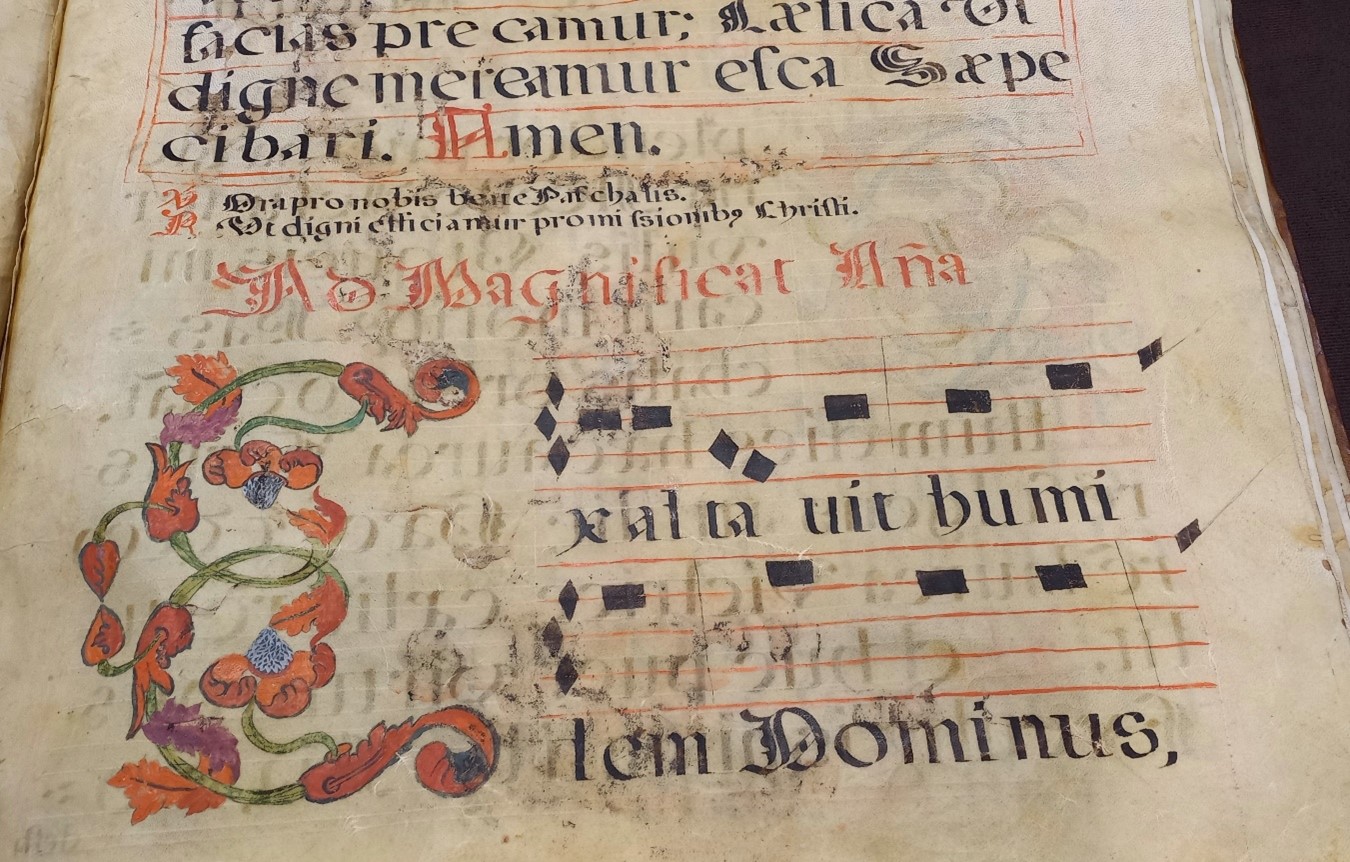 facias pre camur; Lætica Vt
digne mereamur esca Sæpe
cibari. Amen.
V Ora pro nobis beate Paschalis.
R Vt digni efficiamur promissionibꝰ Christi.
Ad Magnificat Aña
Exaltauit humi
lem Dominus,